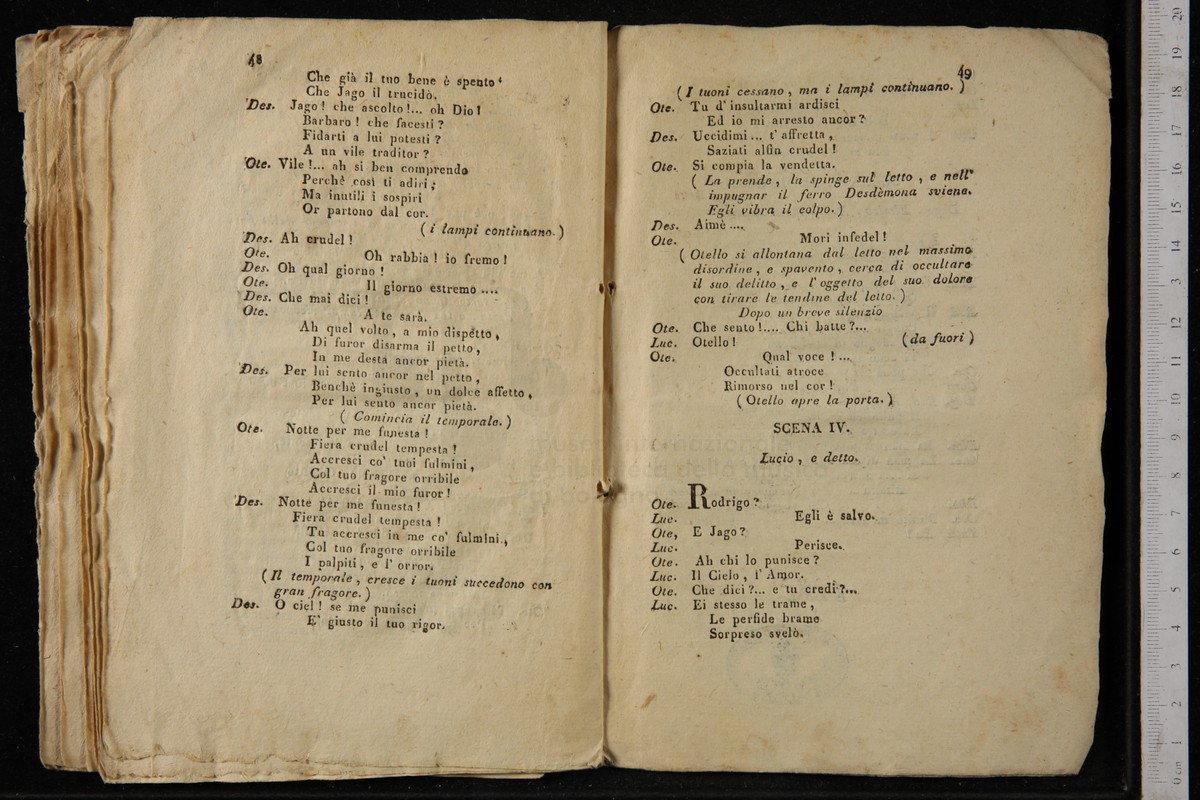 48
Che già il tuo bene è spento
Che Jago il trucidò.
Des. Jago! che ascolto!... oh Dio!
Barbaro! che facesti?
Fidarti a lui potesti?
A un vile traditor?
Ote. Vile!... ah si ben comprendo
Perchè così ti adiri;
Ma inutili i sospiri
Or partono dal cor.
( i lampi continuano. )
Des. Ah crudel!
Ote. Oh rabbia! io fremo!
Des. Oh qual giorno!
Ote. Il giorno estremo ....
Des. Che mai dici!
Ote. A te sarà.
Ah quel volto, a mio dispetto,
Di furor disarma il petto,
In me desta ancor pietà.
Des. Per lui sento ancor nel petto,
Benchè ingiusto, un dolce affetto,
Per lui sento ancor pietà.
( Comincia il temporale. )
Ote. Notte per me funesta!
Fiera crudel tempesta!
Accresci co' tuoi fulmini,
Col tuo fragore orribile
Accresci il mio furor!
Des. Notte per me funesta!
Fiera crudel tempesta!
Tu accresci in me co' fulmini,
Col tuo fragore orribile
I palpiti, e l' orror.
( Il temporale, cresce i tuoni succedono con
gran fragore. )
Des. O ciel! se me punisci
E' giusto il tuo rigor.
49
( I tuoni cessano, ma i lampi continuano. )
Ote. Tu d' insultarmi ardisci
Ed io mi arresto ancor?
Des. Uccidimi... t' affretta,
Saziati alfin crudel!
Ote. Si compia la vendetta.
( La prende, la spinge sul letto, e nell'
impugnar il ferro Desdèmona sviene.
Egli vibra il colpo. )
Des. Aimè ....
Ote. Mori infedel!
( Otello si allontana dal letto nel massimo
disordine, e spavento, cerca di occultare
il suo delitto, e l' oggetto del suo dolore
con tirare le tendine del letto. )
Dopo un breve silenzio
Ote. Che sento!.... Chi batte?...
Luc. Otello! ( da fuori )
Ote. Qual voce! ...
Occultati atroce
Rimorso nel cor!
( Otello apre la porta. )
SCENA IV.
Lucio, e detto.
Ote. Rodrigo?
Luc. Egli è salvo.
Ote, E Jago?
Luc. Perisce.
Ote. Ah chi lo punisce?
Luc. Il Cielo, l' Amor.
Ote. Che dici?... e tu credi?...
Luc. Ei stesso le trame,
Le perfide brame
Sorpreso svelò.